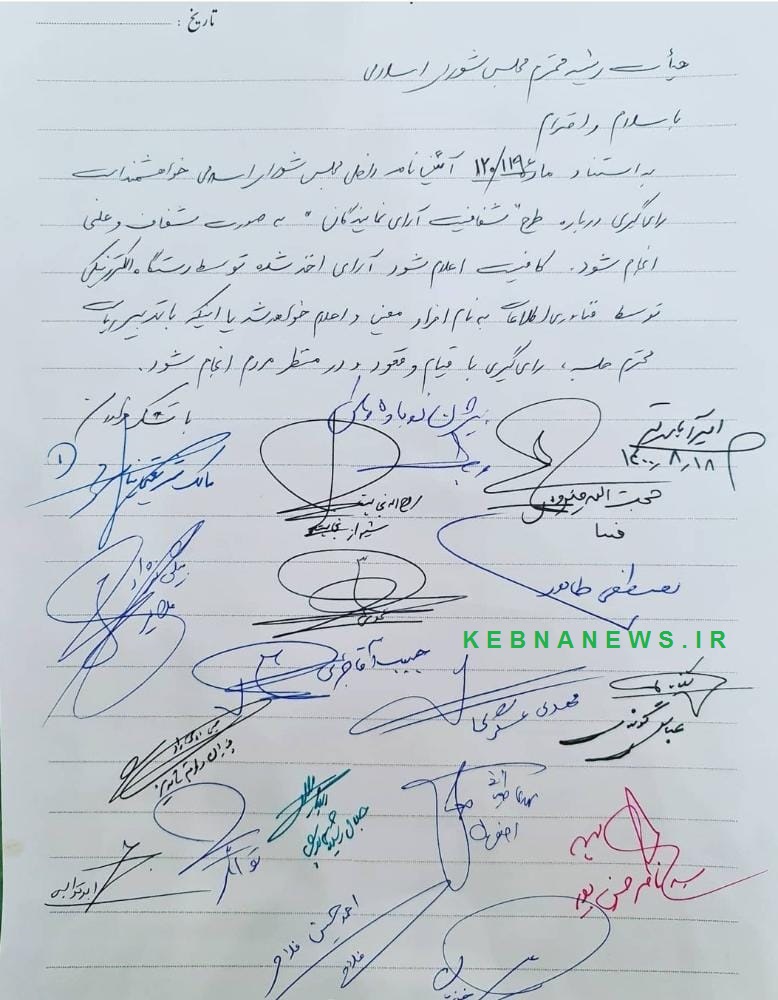 تاریخ :
هیأت رئیسه محترم مجلس شورای اسلامی
با سلام و احترام
به استناد ماده ۱۱۹ / ۱۲۰ آئین نامه داخلی مجلس شورای اسلامی خواهشمند است
رای گیری درباره طرح "شفافیت آرای نمایندگان" به صورت شفاف و علنی
انجام شود. کافیست اعلام شود آرای اخذ شده توسط دستگاه الکترونیکی
توسط فناوری اطلاعات به نام افراد معین و اعلام خواهد شد یا اینکه با تدبیر ریاست
محترم جلسه، رای گیری با قیام و قعود و در منظر مردم انجام شود.
با تشکر
۱۴۰۰/۸/۱۸
مالک شریعتی نیاسر
روح اله نجابت
شیراز
حجت اله فیروزی
فسا
مصطفی طاهری
KEBNANEWS.IR
حبیب آقاجری
مهدی عسگری
عباس گودرزی
مهدی طغیانی
اصفهان
جلال رشیدی کوچی
سید ناصر حسینی پور
احمد حسین فلاحی